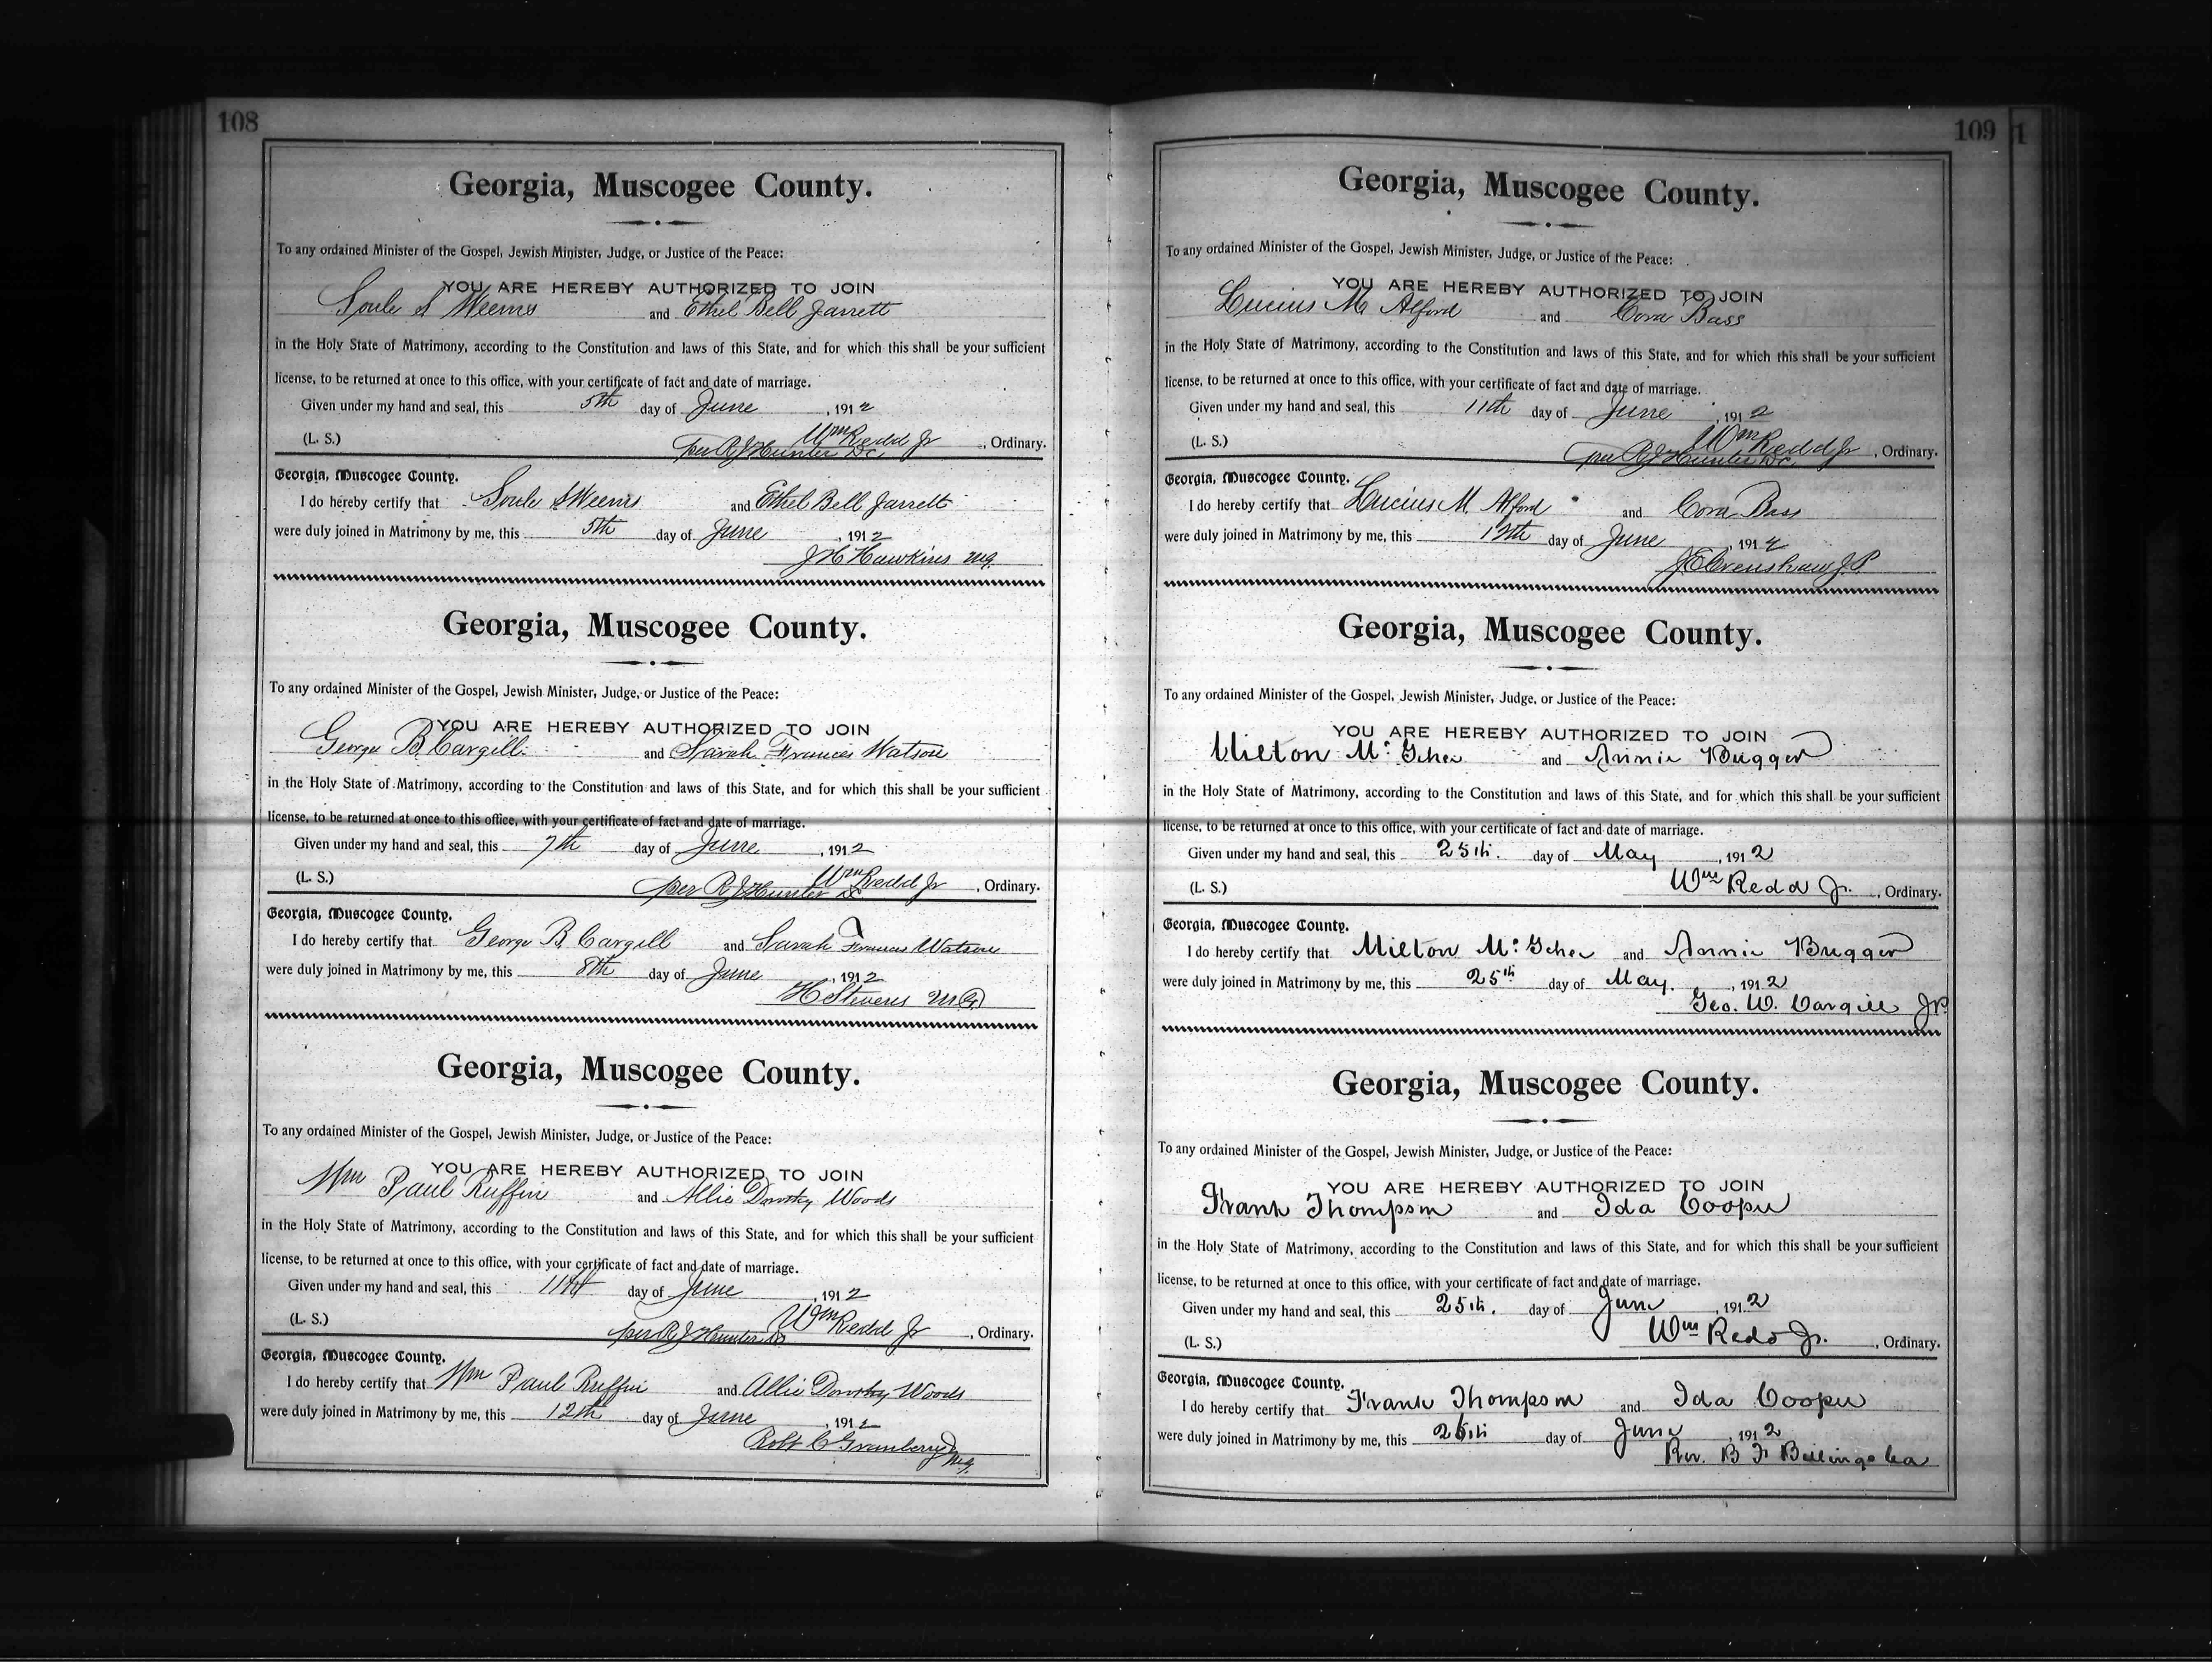 108
Georgia, Muscogee County.
To any ordained Minister of the Gospel, Jewish Minister, Judge, or Justice of the Peace:
YOU ARE HEREBY AUTHORIZED TO JOIN
Soule S Weems and Ethel Bell Jarrett
in the Holy State of Matrimony, according to the Constitution and laws of this State, and for which this shall be your sufficient
license, to be returned at once to this office, with your certificate of fact and date of marriage.
Given under my hand and seal, this 5th day of June, 1912
(L. S.) Wm Redd Jr, Ordinary.
per R J Hunter D.C.
Georgia, Muscogee County.
I do hereby certify that Soule S Weems and Ethel Bell Jarrett
were duly joined in Matrimony by me, this 5th day of June, 1912
J H Hawkins M.G.
Georgia, Muscogee County.
To any ordained Minister of the Gospel, Jewish Minister, Judge, or Justice of the Peace:
YOU ARE HEREBY AUTHORIZED TO JOIN
George B Cargill and Sarah Frances Watson
in the Holy State of Matrimony, according to the Constitution and laws of this State, and for which this shall be your sufficient
license, to be returned at once to this office, with your certificate of fact and date of marriage.
Given under my hand and seal, this 7th day of June, 1912
(L. S.) Wm Redd Jr, Ordinary.
per R J Hunter DC
Georgia, Muscogee County.
I do hereby certify that George B Cargill and Sarah Frances Watson
were duly joined in Matrimony by me, this 8th day of June, 1912
H Stevens M.G.
Georgia, Muscogee County.
To any ordained Minister of the Gospel, Jewish Minister, Judge, or Justice of the Peace:
YOU ARE HEREBY AUTHORIZED TO JOIN
Wm Paul Ruffin and Allie Dorothy Woods
in the Holy State of Matrimony, according to the Constitution and laws of this State, and for which this shall be your sufficient
license, to be returned at once to this office, with your certificate of fact and date of marriage.
Given under my hand and seal, this 11th day of June, 1912
(L. S.) Wm Redd Jr, Ordinary.
per R J Hunter DC
Georgia, Muscogee County.
I do hereby certify that Wm Paul Ruffin and Allie Dorothy Woods
were duly joined in Matrimony by me, this 12th day of June, 1912
Robt C Granberry M.G.
109
1
Georgia, Muscogee County.
To any ordained Minister of the Gospel, Jewish Minister, Judge, or Justice of the Peace:
YOU ARE HEREBY AUTHORIZED TO JOIN
Lucius M Alford and Cora Bass
in the Holy State of Matrimony, according to the Constitution and laws of this State, and for which this shall be your sufficient
license, to be returned at once to this office, with your certificate of fact and date of marriage.
Given under my hand and seal, this 11th day of June, 1912
(L. S.) Wm Redd Jr, Ordinary.
per R J Hunter DC
Georgia, Muscogee County.
I do hereby certify that Lucius M. Alford and Cora Bass
were duly joined in Matrimony by me, this 12th day of June, 1912
J E Crenshaw J.P.
Georgia, Muscogee County.
To any ordained Minister of the Gospel, Jewish Minister, Judge, or Justice of the Peace:
YOU ARE HEREBY AUTHORIZED TO JOIN
Milton McGehee and Annie Bugger
in the Holy State of Matrimony, according to the Constitution and laws of this State, and for which this shall be your sufficient
license, to be returned at once to this office, with your certificate of fact and date of marriage.
Given under my hand and seal, this 25th. day of May, 1912
(L. S.) Wm Redd Jr., Ordinary.
Georgia, Muscogee County.
I do hereby certify that Milton McGehee and Annie Bugger
were duly joined in Matrimony by me, this 25th day of May., 1912
Geo. W. Cargill JP.
Georgia, Muscogee County.
To any ordained Minister of the Gospel, Jewish Minister, Judge, or Justice of the Peace:
YOU ARE HEREBY AUTHORIZED TO JOIN
Frank Thompson and Ida Cooper
in the Holy State of Matrimony, according to the Constitution and laws of this State, and for which this shall be your sufficient
license, to be returned at once to this office, with your certificate of fact and date of marriage.
Given under my hand and seal, this 25th. day of June, 1912
(L. S.) Wm Redd Jr., Ordinary.
Georgia, Muscogee County.
I do hereby certify that Frank Thompson and Ida Cooper
were duly joined in Matrimony by me, this 26th day of June, 1912
Rev. B F